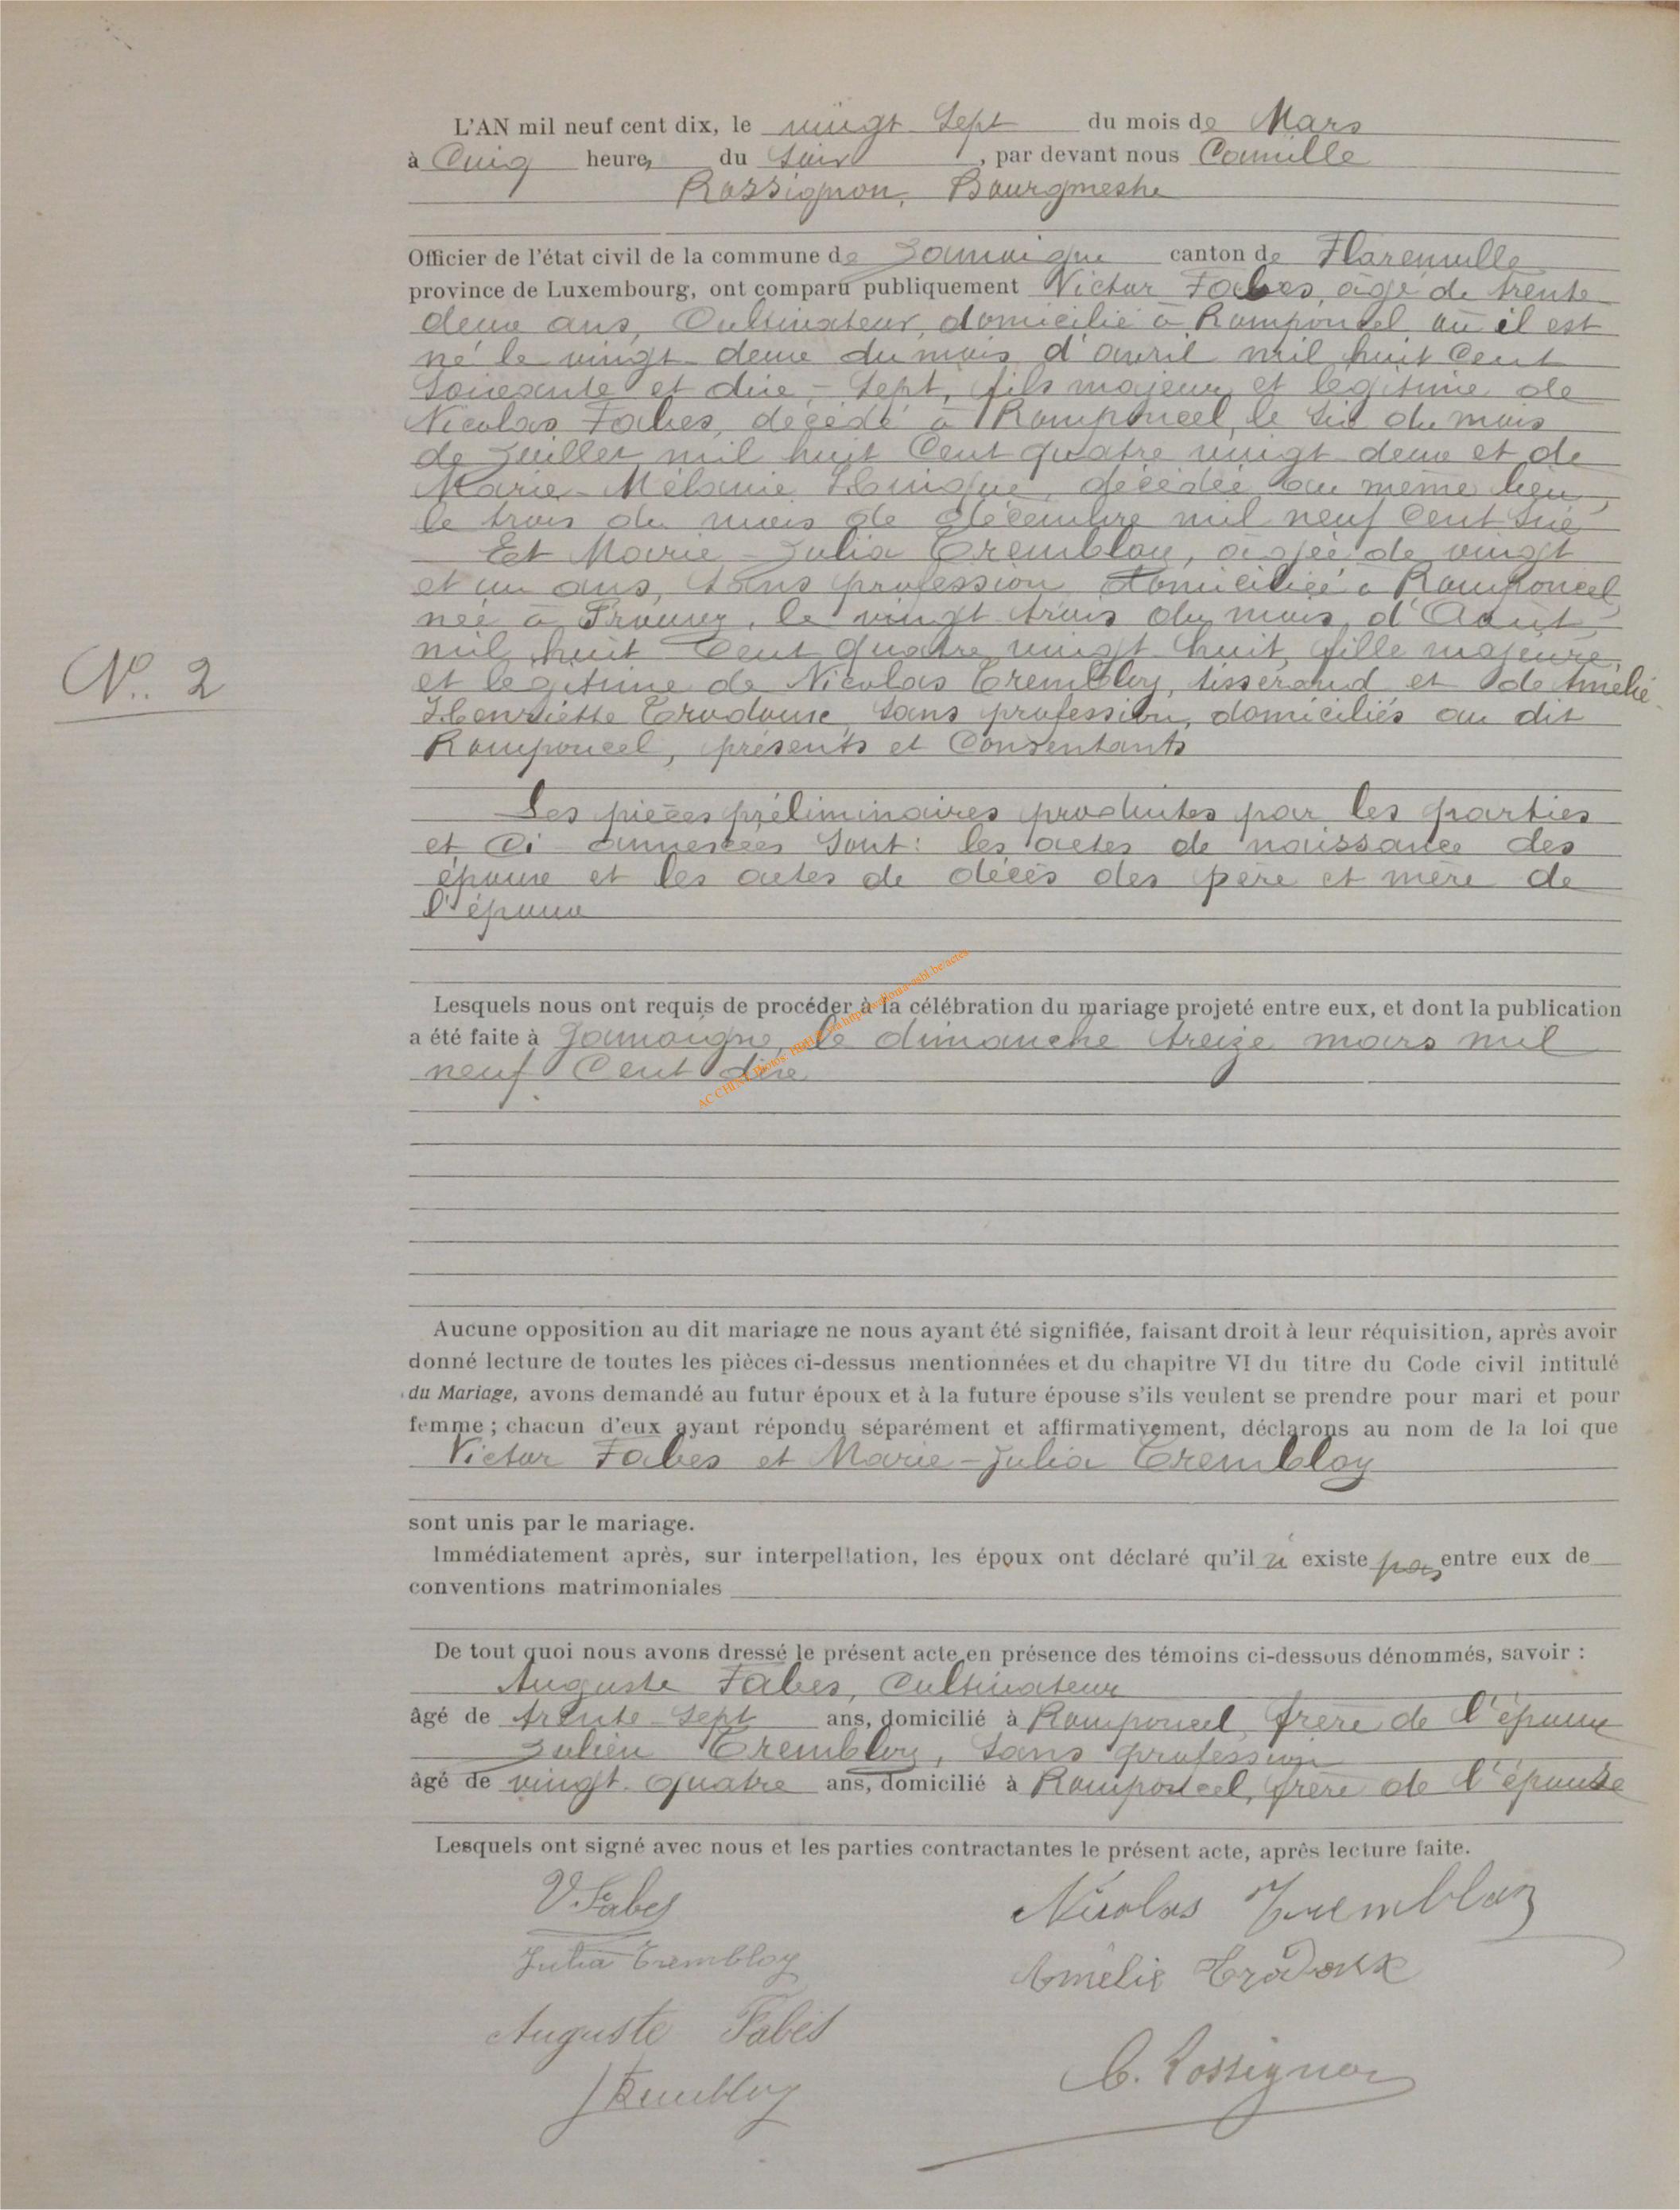 L'AN mil neuf cent dix, le vingt Sept du mois de Mars
à Cinq heures du Soir, par devant nous Camille
Rossignon, Bourgmestre
Officier de l'état civil de la commune de Jamoigne canton de Florenville
province de Luxembourg, ont comparu publiquement Victor Fabes, âgé de trente
deux ans, Cultivateur, domicilié à Romponcel où il est
né le vingt deux du mois d'avril mil huit Cent
Soixante et dix-Sept, fils majeur et légitime de
Nicolas Fabes, décédé à Romponcel, le Six du mois
de Juillet mil huit Cent quatre vingt deux et de
Marie-Mélanie décédée au même lieu,
le trois du mois de décembre mil neuf Cent Six
Et Marie-Julia Trembloy, âgée de vingt
et un ans, Sans profession domiciliée à Romponcel
née à Prouvy, le vingt trois du mois d'Août
mil huit Cent quatre vingt huit, fille majeure,
et légitime de Nicolas Trembloy, tisserand et de Amélie
Henriette Trodoux, Sans profession, domiciliés au dit
Romponcel, présents et Consentants
Les pièces préliminaires produites par les parties
et Ci-annexées Sont: les actes de naissance des
époux et les actes de décès des père et mère de
l'époux
Lesquels nous ont requis de procéder à la célébration du mariage projeté entre eux, et dont la publication
a été faite à Jamoigne, le dimanche treize mars mil
neuf Cent dix
Aucune opposition au dit mariage ne nous ayant été signifiée, faisant droit à leur réquisition, après avoir
donné lecture de toutes les pièces ci-dessus mentionnées et du chapitre VI du titre du Code civil intitulé
du Mariage, avons demandé au futur époux et à la future épouse s'ils veulent se prendre pour mari et pour
femme ; chacun d'eux ayant répondu séparément et affirmativement, déclarons au nom de la loi que
Victor Fabes et Marie-Julia Trembloy
sont unis par le mariage.
Immédiatement après, sur interpellation, les époux ont déclaré qu'il n'existe pas entre eux de
conventions matrimoniales
De tout quoi nous avons dressé le présent acte en présence des témoins ci-dessous dénommés, savoir :
Auguste Fabes, Cultivateur
âgé de trente-Sept ans, domicilié à Romponcel, frère de l'époux
Julien Trembloy, Sans profession
âgé de vingt-quatre ans, domicilié à Romponcel, frère de l'épouse
Lesquels ont signé avec nous et les parties contractantes le présent acte, après lecture faite.
V. Fabes
Nicolas Trembloy
Julia Trembloy
Amélie Trodoux
Auguste Fabes
C. Rossignon
J Trembloy
N°. 2